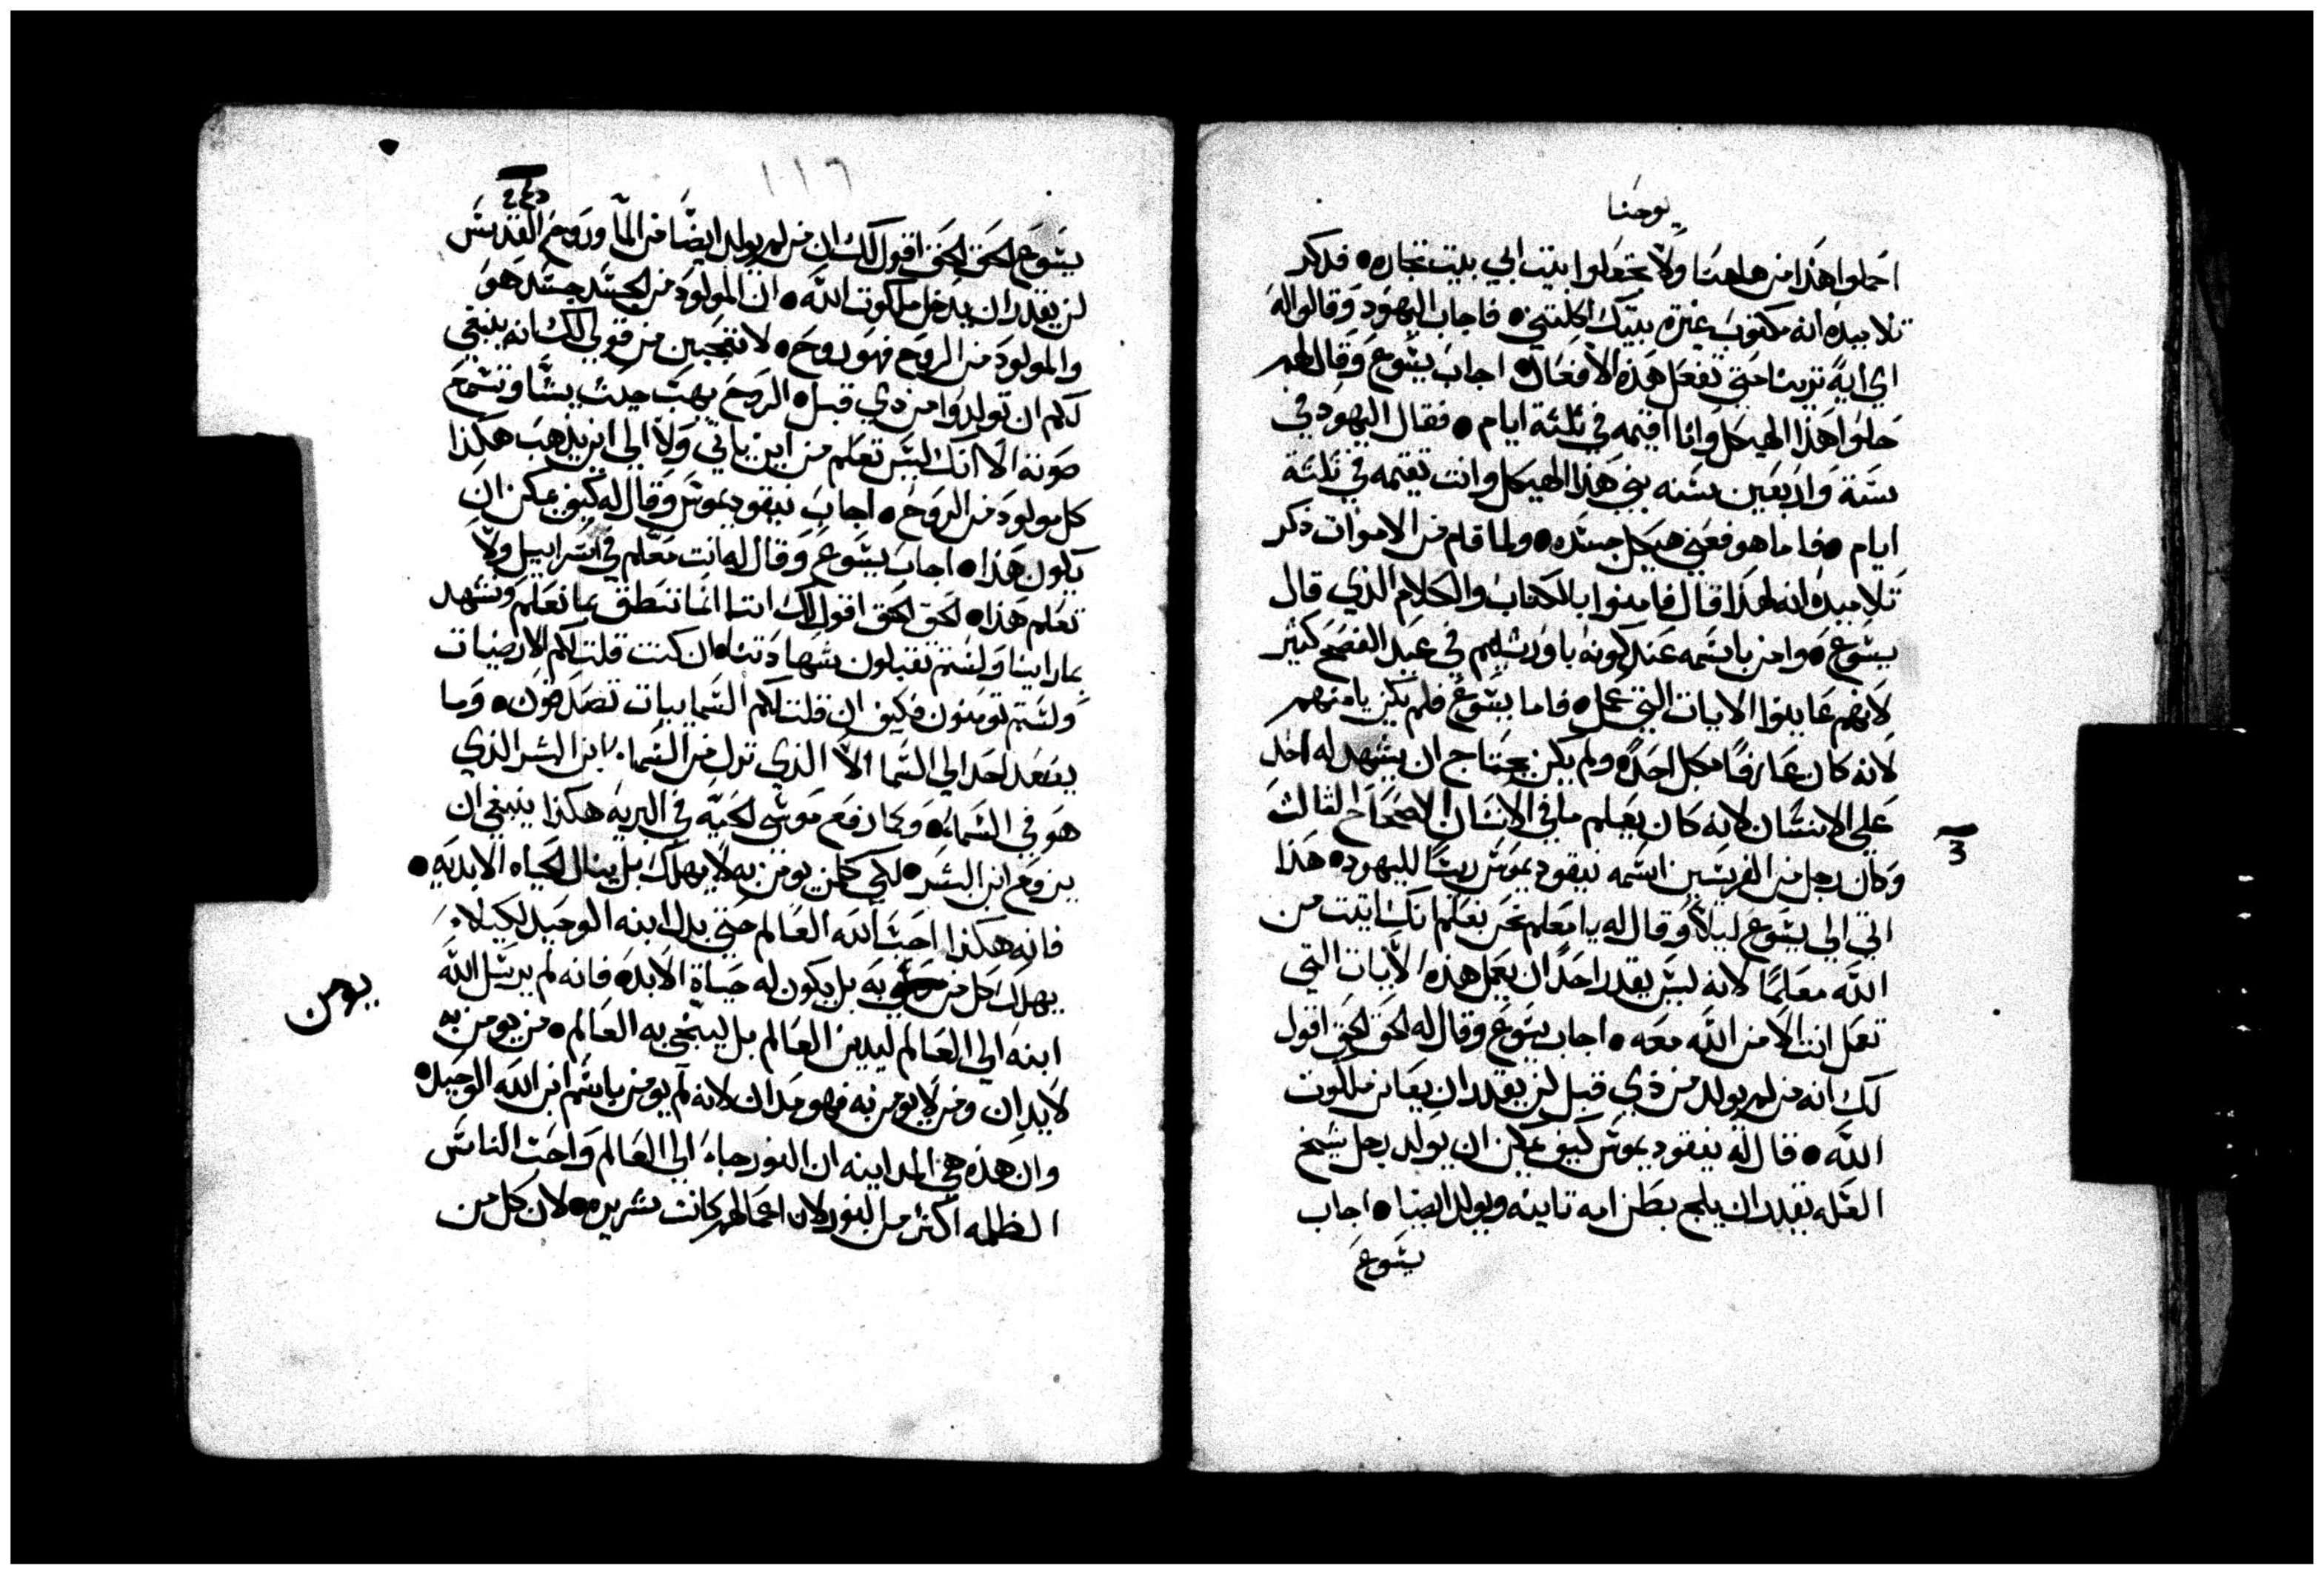 يوحنا
احملوا هذا من هاهنا ولا تجعلوا بيت ابي بيت تجاره ● فدكر
تلاميده انه مكتوب غيرة بيتك اكلتني ● فاجاب اليهود وقالوا له
اي اية ترينا حتي تفعل هذه الافعال ● اجاب يشوع وقال لهم
حلوا هذا الهيكل وانا اقيمه في ثلثة ايام ● فقال اليهود في
ستة واربعين سنه بني هذا الهيكل وانت تقيمه في ثلثة
ايام ● فاما هو فعني هيكل جسده ● ولما قام من الاموات ذكر
تلاميده انه لهذا قال فامنوا بالكتاب والكلام الذي قال
يشوع ● وامن باسمه عند كونه باورشليم في عيد الفصح كثير
لانهم عاينوا الايات التي عمل ● فاما يشوع فلم يكن يامنهم
لانه كان عارفا بكل احد ● ولم يكن يحتاج ان يشهد له احد
علي الانسان لانه كان يعلم ما في الانسان الاصحاح الثالث
3
وكان رجل من الفريسين اسمه نيقوديموس ريسا لليهود ● هذا
اتي الي يشوع ليلا وقال له يا معلم نحن نعلم انك اتيت من
الله معلما لانه ليس يقدر احد ان يعمل هذه الايات التي
تعمل انت الا من الله معه ● اجاب يشوع وقال له الحق الحق اقول
لك انه من لم يولد من ذي قبل لن يقدر ان يعاين ملكوت
الله ● قال له نيقوديموس كيف يمكن ان يولد رجل شيخ
العله يقدر ان يلج بطن امه تانيه ويولد ايضا ● اجاب
يشوع
١١٦
يشوع الحق الحق اقول لك ان من لم يولد ايضا من الما وروح القدس
لن يقدر ان يدخل ملكوت الله ● ان المولود من الجسد جسد هو
والمولود من الروح فهو روح ● لا تتعجبن من قولي لك انه ينبغي
لكم ان تولدوا من ذي قبل ● الروح يهب حيث يشا وتسمع
صوته الا انك ليس تعلم من اين ياتي ولا الي اين يذهب هكذا
كل مولود من الروح ● اجاب نيقوديموس وقال له كيف يمكن ان
يكون هذا ● اجاب يشوع وقال له انت معلم في اسراييل ولا
تعلم هذا ● الحق الحق اقول لك اننا انما ننطق بما نعلم ونشهد
بما راينا ولستم تقبلون شهادتنا ● ان كنت قلت لكم الارضيات
ولستم تومنون فكيف ان قلت لكم السماييات تصدقون ● وما
يصعد احد الي السما الا الذي نزل من السماء ابن البشر الذي
هو في السماء ● وكما رفع موسي الحية في البريه هكذا ينبغي ان
يرفع ابن البشر ● لكي كلمن يومن به لا يهلك بل ينال الحياه الابديه ●
فانه هكذا احب الله العالم حتي بدل ابنه الوحيد لكيلا
يهلك كل من به بل يكون له حياة الابد ● فانه لم يرسل الله
يومن
ابنه الي العالم ليدين العالم بل لينجي به العالم ● من يومن به
لا يدان ومن لا يومن به فهو مدان لانه لم يومن باسم ابن الله الوحيد ●
وان هذه هي المداينه ان النور جاء الي العالم واحب الناس
الظلمه اكثر من النور لان اعمالهم كانت شريره ● لان كل من